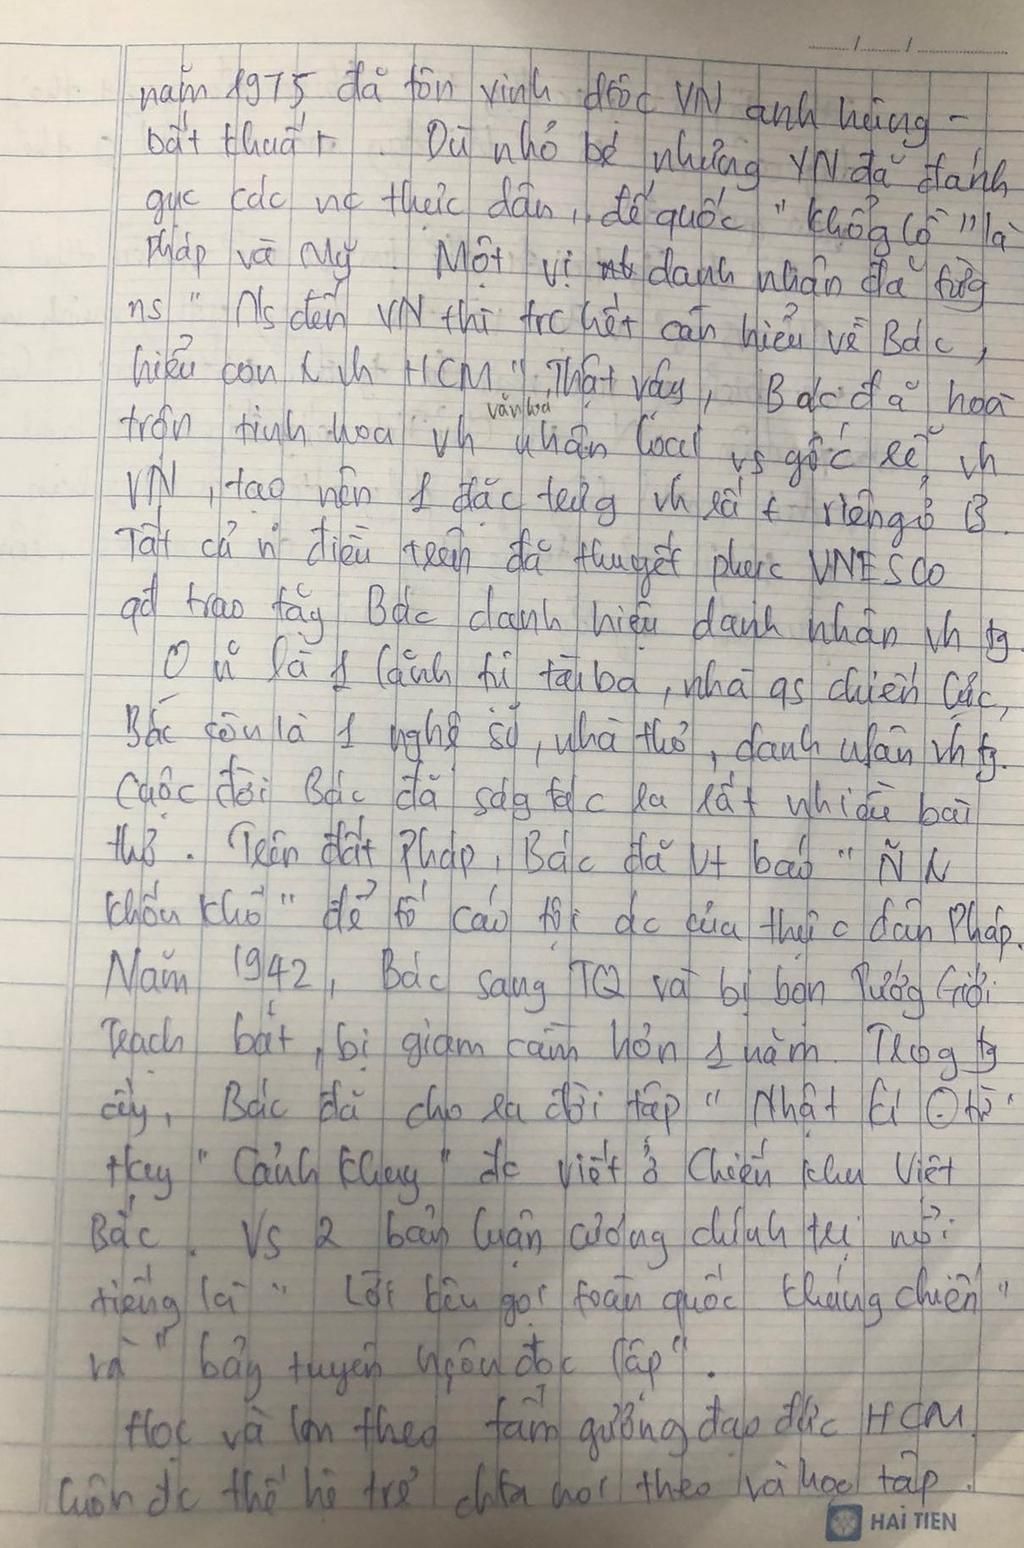 năm 1975 đã tôn vinh dtộc VN anh hùng -
bất khuất. Dù nhỏ bé nhưng VN đã đánh
gục các nc thực dân, đế quốc "khổng lồ" là
Pháp và Mỹ. Một vị danh nhân đã từg
ns " Ns đến VN thì trc hết cần hiểu về Bác,
hiểu con ng HCM". Thật vậy, Bác đã hoà
văn hoá
trộn tinh hoa vh nhân loại vs gốc rễ vh
VN, tạo nên 1 đặc trưg vh rất riêng ở B.
Tất cả n~ điều trên đã thuyết phục UNESCO
qđ trao tặg Bác danh hiệu danh nhân vh tg.
O n~ là 1 lãnh tụ tài ba, nhà qs chiến lược,
Bác còn là 1 nghệ sỹ, nhà thơ, danh nhân vh tg.
Cuộc đời Bác đã ság tác ra rất nhiều bài
thơ. Trên đất Pháp, Bác đã vt báo "Ng̃ N
khốn khổ" để tố cáo tội ác của thực dân Pháp.
Năm 1942, Bác sang TQ và bị bọn Tưởg Giới
Trạch bắt, bị giam cầm hơn 1 năm. Trog tg
ấy, Bác đã cho ra đời tập "Nhật kí O tù"
Hay "Cảnh khuya" đc viết ở Chiến khu Việt
Bắc. Vs 2 bản luận cương chính trị nổi
tiếng là " Lời kêu gọi toàn quốc kháng chiến"
và "bản tuyên ngôn độc lập".
Học và làm theo tấm gương đạo đức HCM
luôn đc thế hệ trẻ noi theo và học tập.
HẢI TIẾN